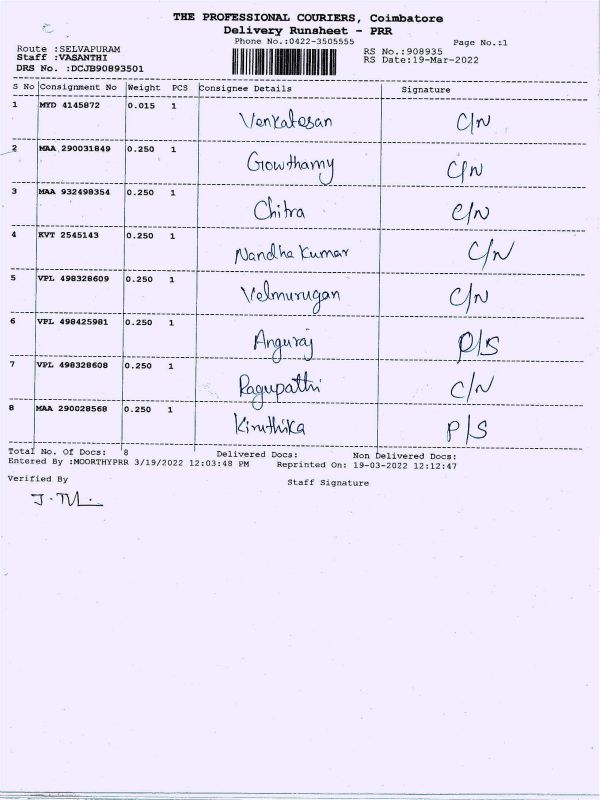 THE PROFESSIONAL COURIERS, Coimbatore
Delivery Runsheet - PRR
Phone No.:0422-3505555 Page No.:1
Route :SELVAPURAM RS No.:908935
Staff :VASANTHI RS Date:19-Mar-2022
DRS No. :DCJB90893501
S No Consignment No Weight PCS Consignee Details Signature
1 MYD 4145872 0.015 1 Venkatesan C/N
2 MAA 290031849 0.250 1 Gowthamy C/N
3 MAA 932498354 0.250 1 Chitra C/N
4 KVT 2545143 0.250 1 Nandha Kumar C/N
5 VPL 498328609 0.250 1 Velmurugan C/N
6 VPL 498425981 0.250 1 Anguraj P/S
7 VPL 498328608 0.250 1 Ragupathi C/N
8 MAA 290028568 0.250 1 Kiruthika P/S
Total No. Of Docs: 8 Delivered Docs: Non Delivered Docs:
Entered By :MOORTHYPRR 3/19/2022 12:03:48 PM Reprinted On: 19-03-2022 12:12:47
Verified By Staff Signature